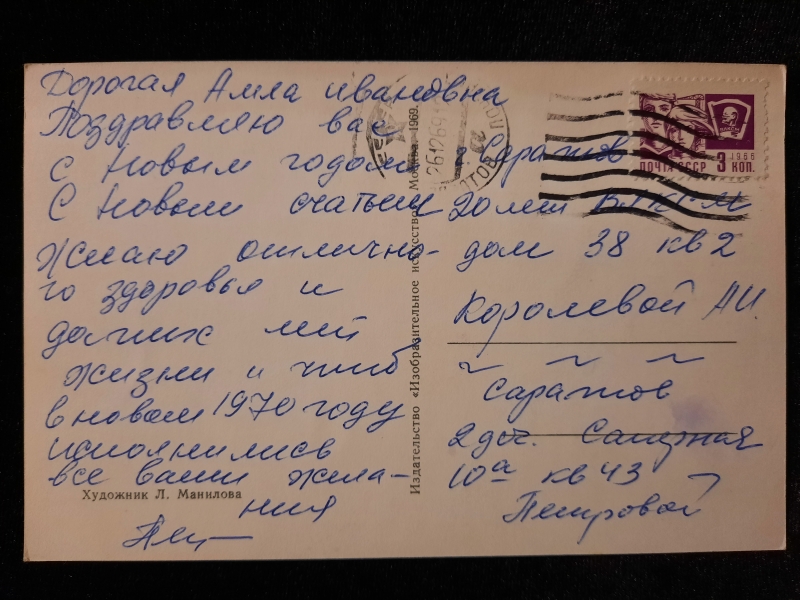 Дорогая Алла ивановна
Поздравляю вас
с Новым годом
С Новым счатьем
Желаю отлично-
го здоровья и
долгих лет
жизни и чтоб
в новом 1970 году
исполнились
все ваши жела-
ния
Художник Л. Манилова
Издательство «Изобразительное искусство». Москва. 1969.
261269
ПОЧТА СССР
1966
3 КОП.
ВЛКСМ
г Саратов
20 лет ВЛКСМ
дом 38 кв 2
Королевой АИ.
Саратов
10а кв 43
Петровой